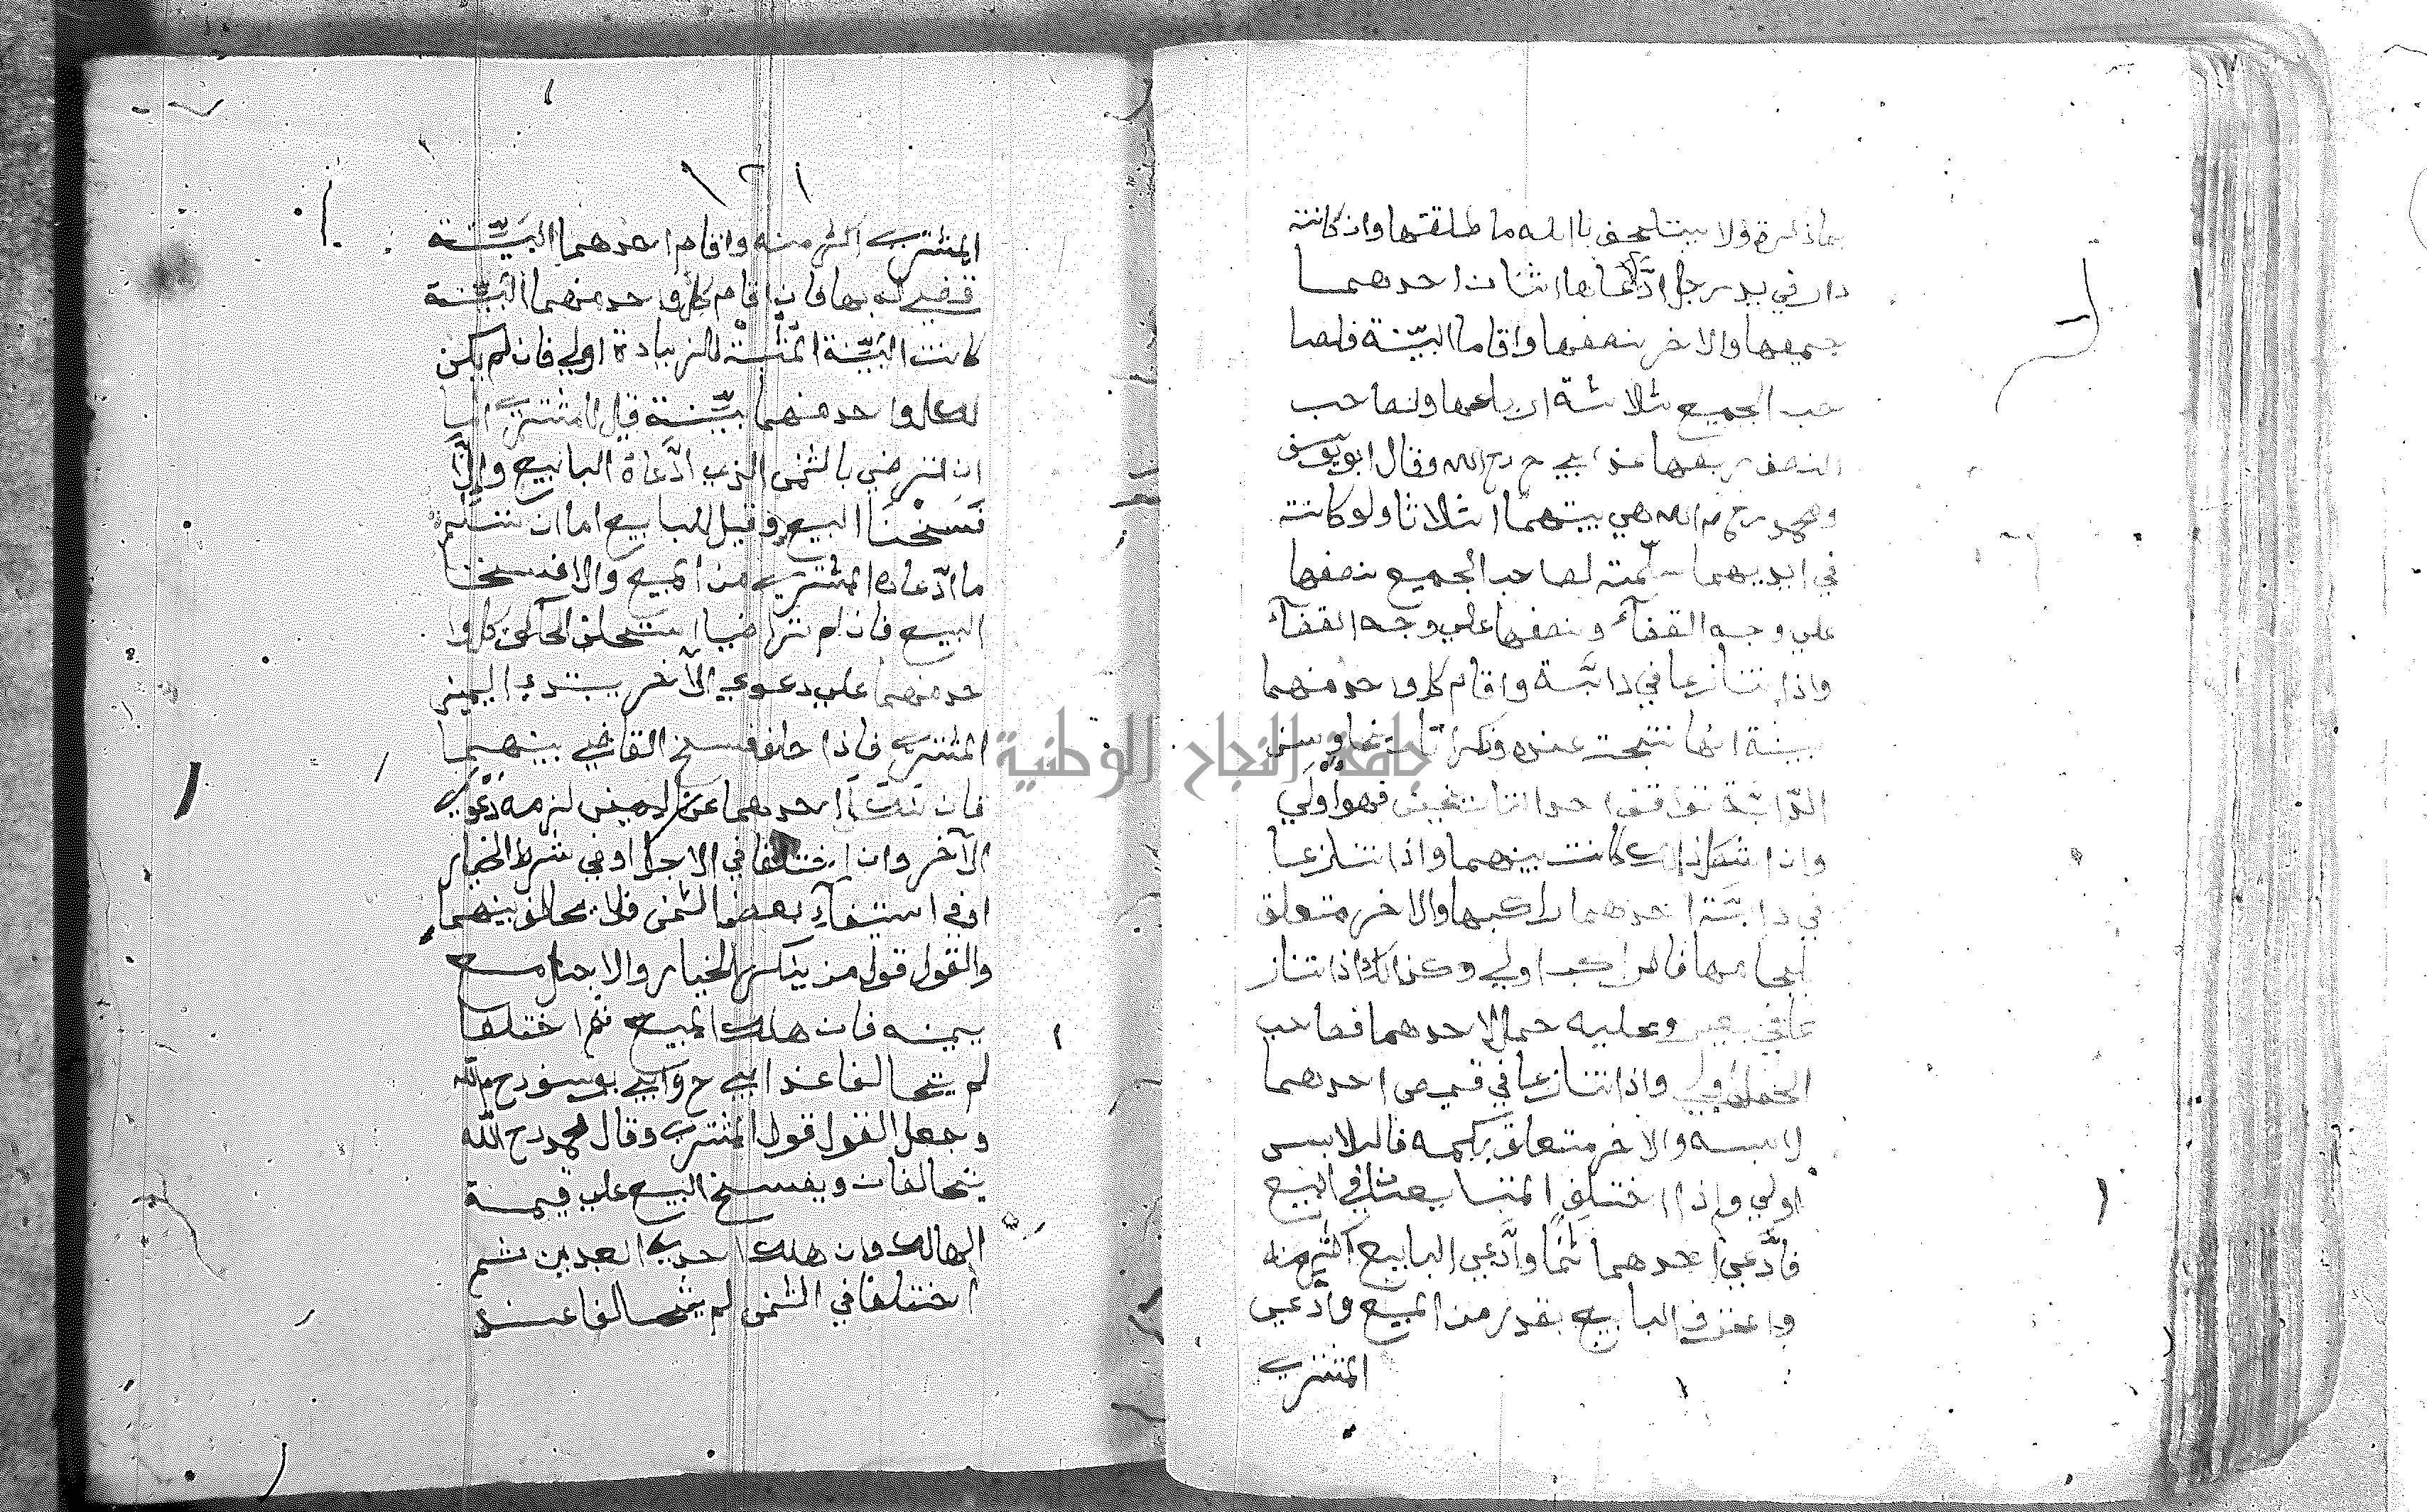 بماذكره ولا يستحلف بالله ما طلقتها وان كانت
دار في يد رجل ادّعاها اثنان احدهمـا
جميعها والاخر نصفها واقاما البيّنة فلصا
حب الجميع ثلاثة ارباعها ولصاحب
النصف ربعها عند ابي ح رح الله وقال ابو يوسف
ومحمد رح م الله هي بينهما اثلاثا ولو كانت
في ايديهما سلّمت لصاحب الجميع نصفها
علي وجه القضآء ونصفها لا علي وجه القضآء
واذا تنازعا في دابّة واقام كل واحد منهما
بينة انها نتجت عنده وذكرا تاريخا وسن
الدّابّة توافق احد التاريخين فهو اولي
وان اشكل ذلك كانت بينهما واذا تنازعا
في دابّة احدهما راكبها والاخر متعلق
بلجامها فالراكب اولي وكذالك اذا تناز
عا في بعير وعليه حمل لاحدهما فصاحب
الحمل اولي واذا تنازعا في قميص احدهما
لابسه والاخر متعلق بكمه فاللابس
اولي واذا اختلف المتبايعان في البيع
فادّعي احدهما ثمنًا وادّعي البايع اكثر منه
واعترف البايع بقدر من المبيع وادّعي
المشتري
جامعة النجاح الوطنية
١٢١
المشتري اكثر منه واقام احدهما البيّنـة
قضي له بها فان اقام كل واحد منهما البيّنـة
كانت البيّنة المثبتة للزيادة اولي فان لم يكن
لكل واحد منهما بيّنـة قيل للمشتري اما
ان ترضي بالثمن الذي ادّعاه البايع والّا
فسخنا البيع وقيل للبايع اما ان تسلّم
ما ادّعاه المشتري من المبيع والا فسخنا
البيع فان لم يتراضيا استحلف الحاكم كل وا
حد منهما علي دعوي الآخر يبتدي اليمين
المشتري فاذا حلف فسخ القاضي بينهمـا
فان نكل احدهما عن اليمين لزمه دعوي
الآخر وان اختلفا في الاجل او في شرط الخيار
او في استيفآء بعض الثمن فلا يحالف بينهما
والقول قول من ينكر الخيار والاجل مـع
يمينه فان هلك المبيع ثم اختلفا
لم يتحالفا عند ابي ح وابي يوسف رح م الله
وجعل القول قول المشتري وقال محمد رح الله
يتحالفان ويفسخ البيع علي قيمـة
الهالك وان هلك احدي العبدين ثـم
اختلفا في الثمن لم يتحـالفا عنـد